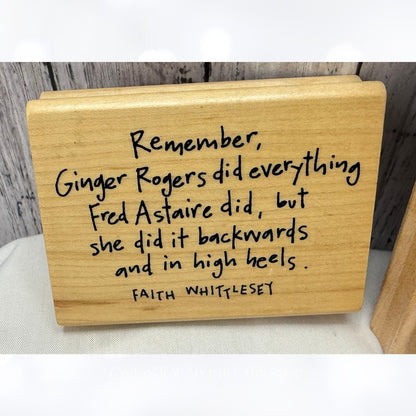 Remember,
Ginger Rogers did everything
Fred Astaire did, but
she did it backwards
and in high heels.
FAITH WHITTLESEY